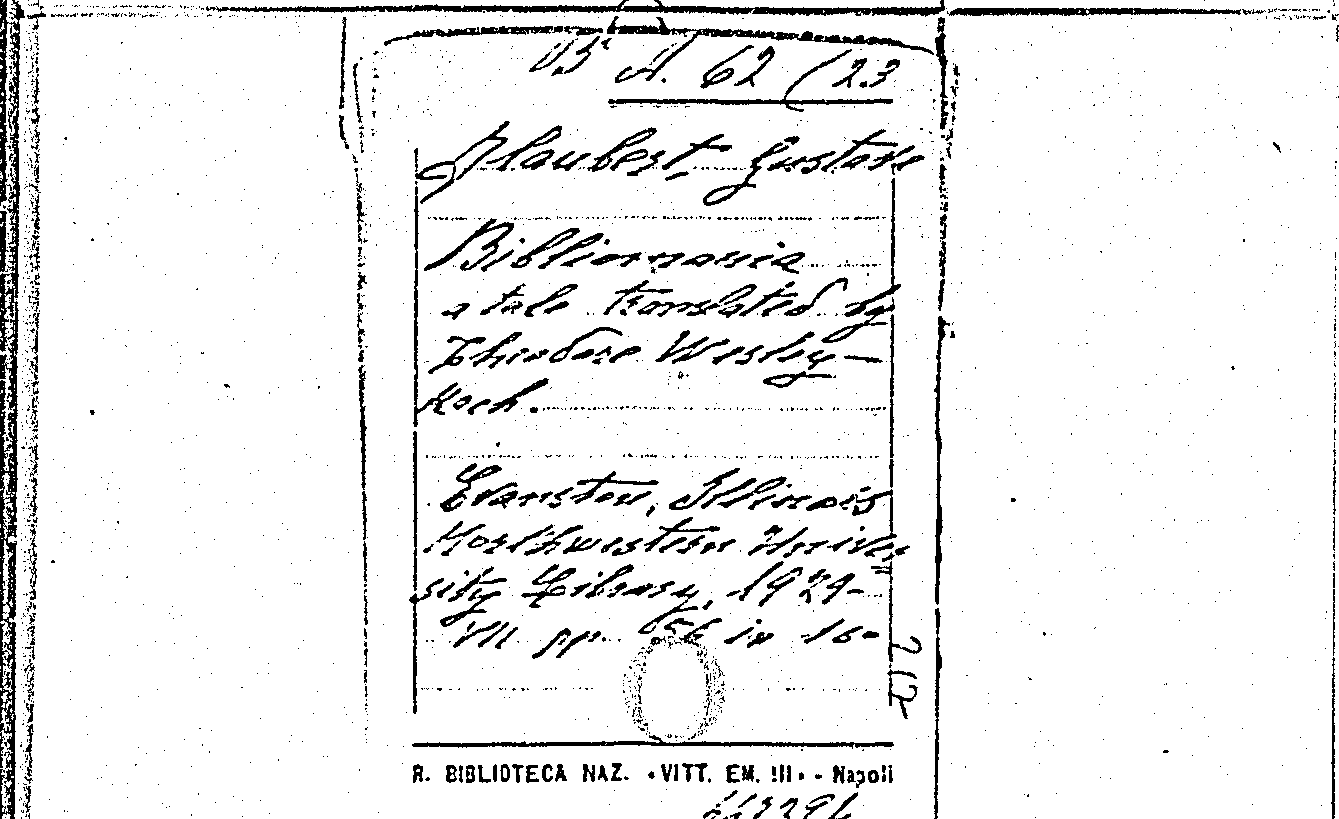 A. 62 (23
Flaubert, Gustave
Bibliomania
a tale translated by
Theodore Wesley
Koch.
Evanston, Illinois
Northwestern Univer
sity Library, 1929-
VII pp. 56 in 16°
212
R. BIBLIOTECA NAZ. «VITT. EM. III» - Napoli